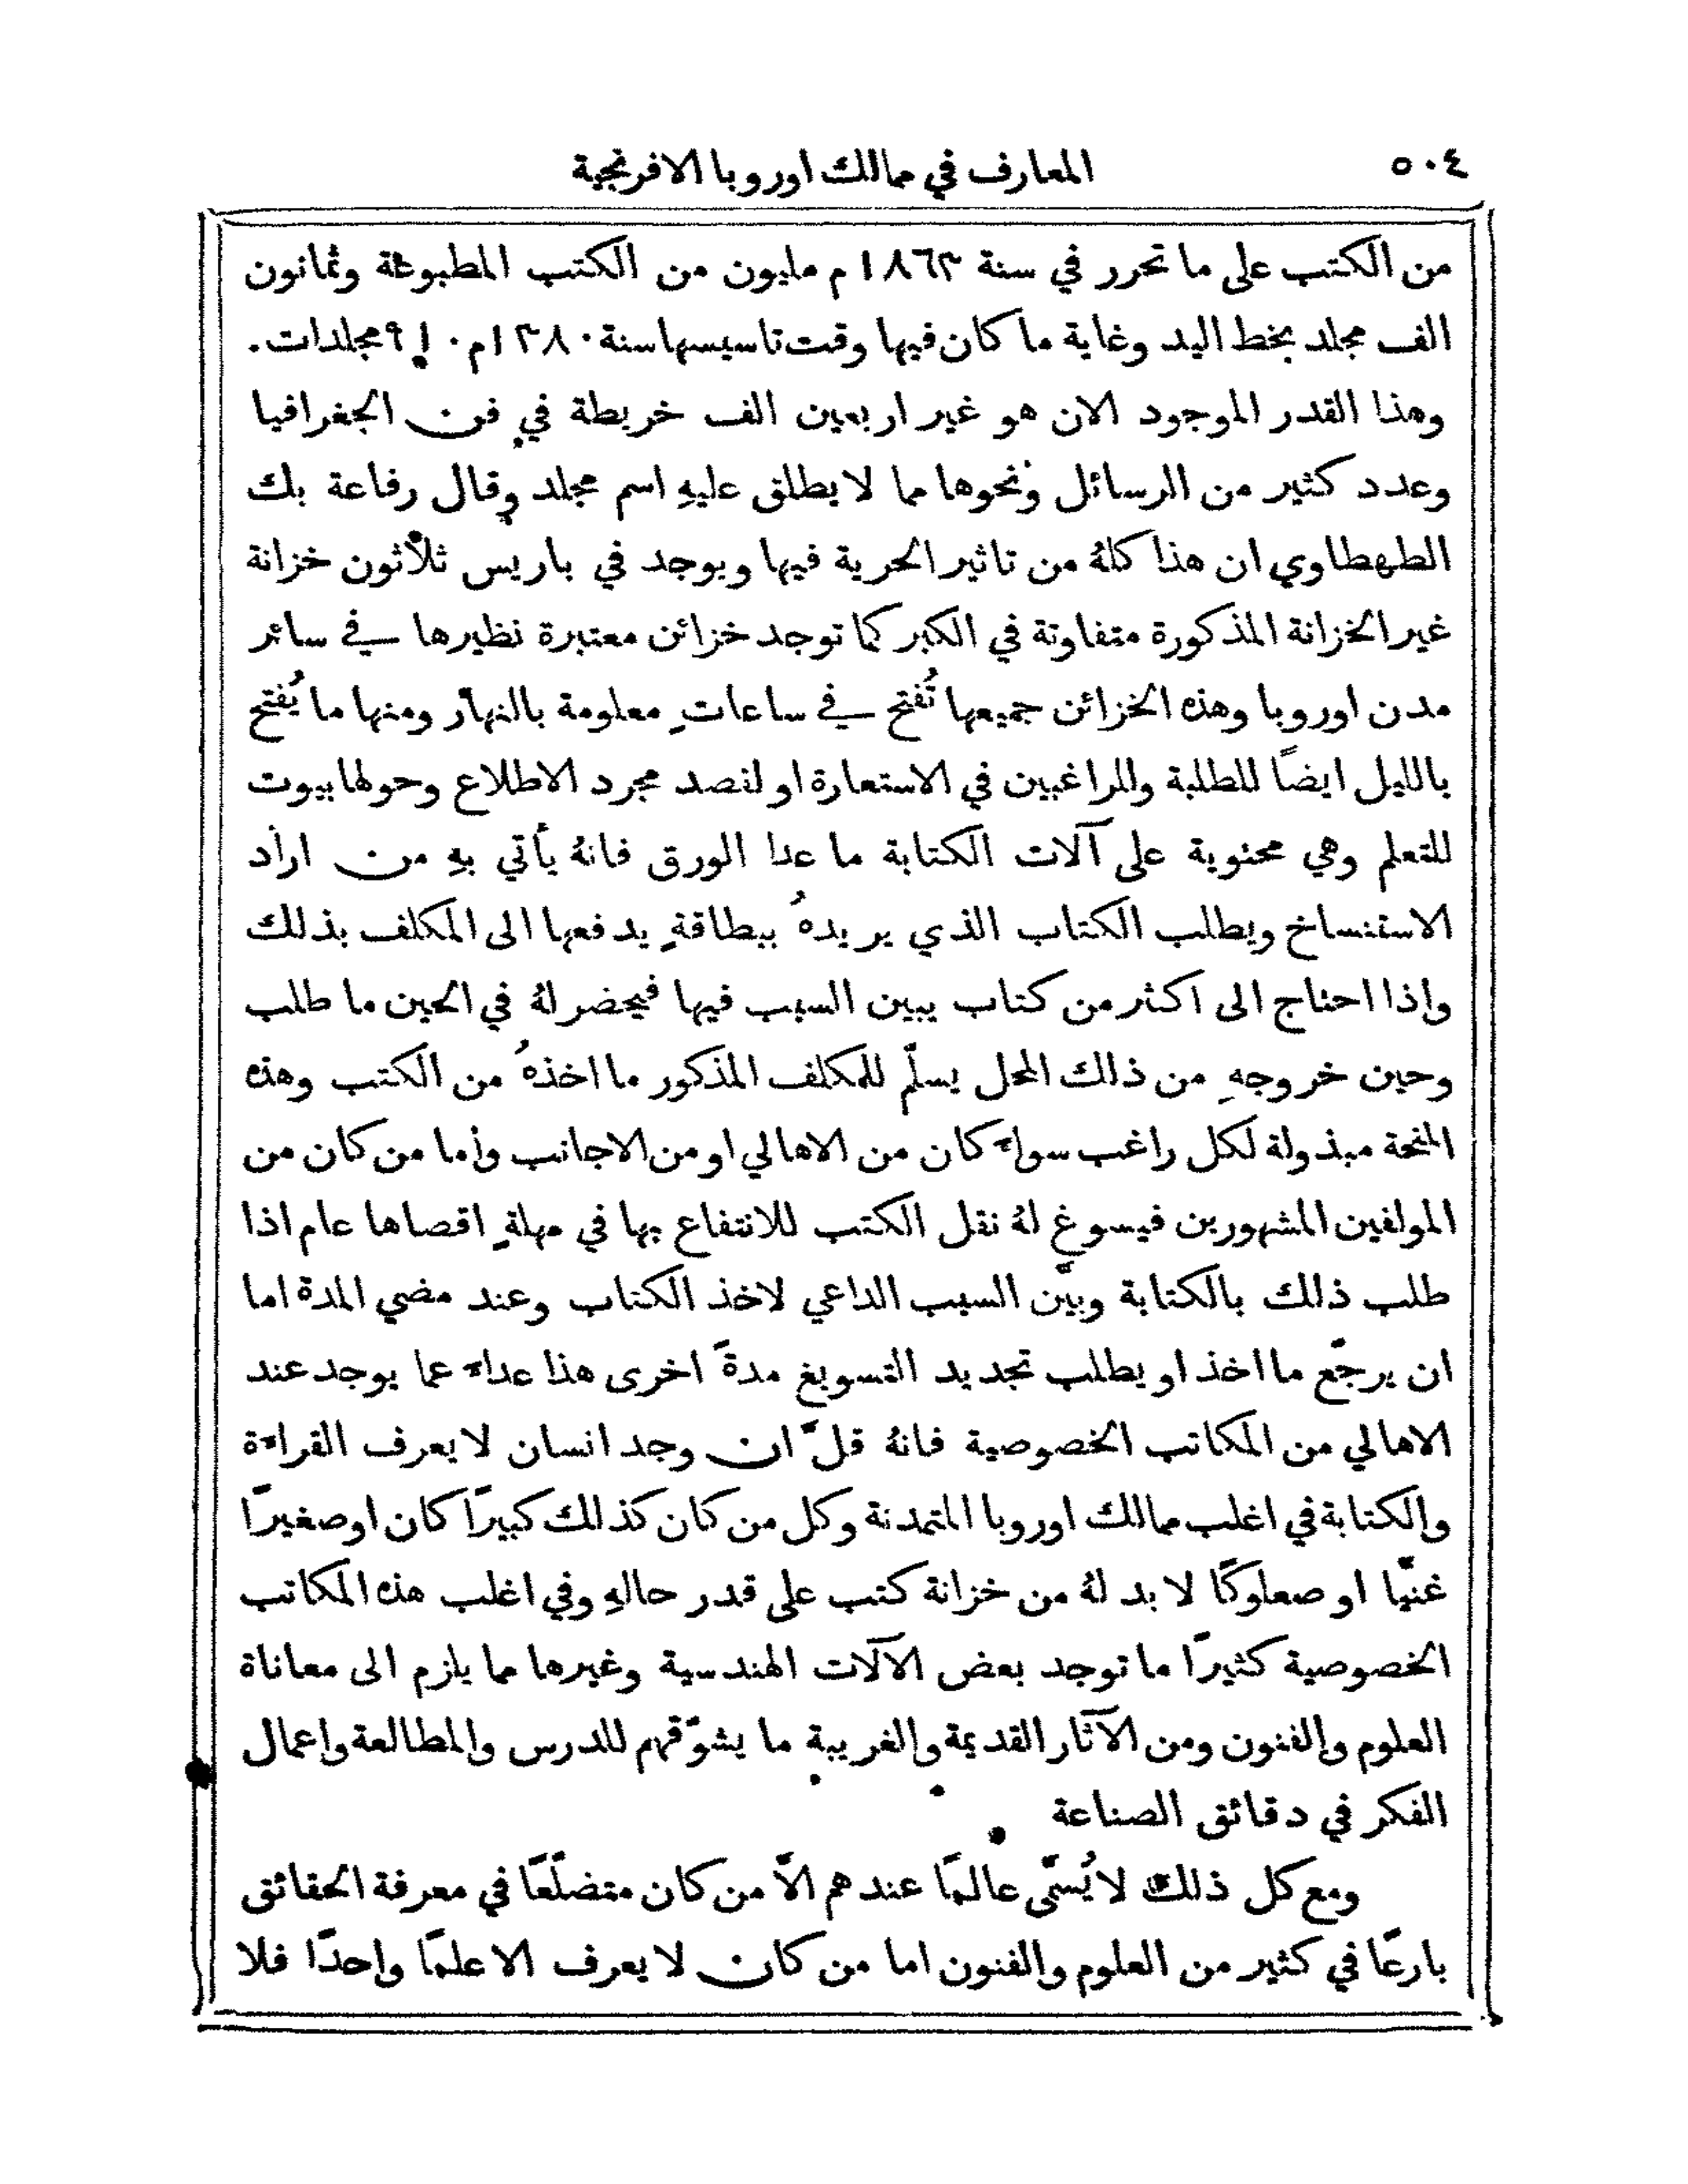 ٥٠٤
المعارف في ممالك اوروبا الافرنجية
من الكتب على ما تحرر في سنة ١٨٦٣ م مليون من الكتب المطبوعة وثمانون
الف مجلد بخط اليد وغاية ما كان فيها وقت تاسيسها سنة ١٣٨٠م ٩١٠ مجلدات.
وهذا القدر الموجود الان هو غير اربعين الف خريطة في فن الجغرافيا
وعدد كثير من الرسائل ونحوها مما لا يطلق عليهِ اسم مجلد وقال رفاعة بك
الطهطاوي ان هذا كلهُ من تاثير الحرية فيها ويوجد في باريس ثلاثون خزانة
غير الخزانة المذكورة متفاوتة في الكبر كما توجد خزائن معتبرة نظيرها في سائر
مدن اوروبا وهذه الخزائن جميعها تُفتح في ساعاتٍ معلومة بالنهار ومنها ما يُفتح
بالليل ايضًا للطلبة وللراغبين في الاستعارة او لقصد مجرد الاطلاع وحولها بيوت
للتعلم وهي محتوية على آلات الكتابة ما عدا الورق فانهُ يأتي بهِ من اراد
الاستنساخ ويطلب الكتاب الذي يريدهُ ببطاقةٍ يدفعها الى المكلف بذلك
واذا احتاج الى اكثر من كتاب يبين السبب فيها فيحضر لهُ في الحين ما طلب
وحين خروجهِ من ذلك المحل يسلّم للمكلف المذكور ما اخذهُ من الكتب وهذه
المنحة مبذولة لكل راغب سواء كان من الاهالي او من الاجانب وأما من كان من
المولفين المشهورين فيسوغ لهُ نقل الكتب للانتفاع بها في مهلةٍ اقصاها عام اذا
طلب ذلك بالكتابة وبيّن السبب الداعي لاخذ الكتاب وعند مضي المدة اما
ان يرجّع ما اخذ او يطلب تجديد التسويغ مدةً اخرى هذا عداء عما يوجد عند
الاهالي من المكاتب الخصوصية فانهُ قلّ ان وجد انسان لا يعرف القراءة
والكتابة في اغلب ممالك اوروبا المتمدنة وكل من كان كذلك كبيرًا كان او صغيرًا
غنيًّا او صعلوكًا لا بد لهُ من خزانة كتب على قدر حالهِ وفي اغلب هذه المكاتب
الخصوصية كثيرًا ما توجد بعض الآلات الهندسية وغيرها مما يلزم الى معاناة
العلوم والفنون ومن الآثار القديمة والغريبة ما يشوّقهم للدرس والمطالعة واعمال
الفكر في دقائق الصناعة
ومع كل ذلك لا يُسمّى عالمًا عندهم الاّ من كان متضلّعًا في معرفة الحقائق
بارعًا في كثير من العلوم والفنون اما من كان لا يعرف الا علمًا واحدًا فلا